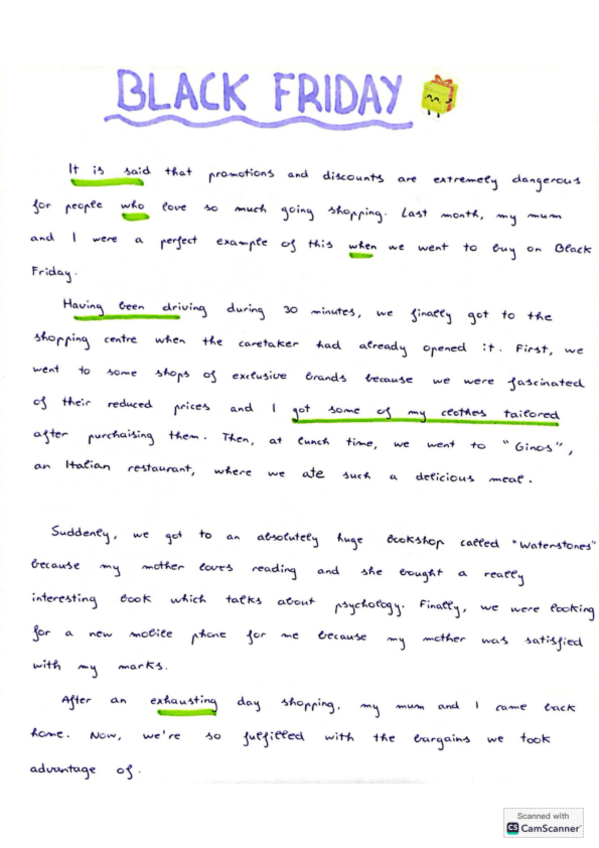 BLACK FRIDAY
It is said that promotions and discounts are extremely dangerous
for people who love so much going shopping. Last month, my mum
and I were a perfect example of this when we went to buy on Black
Friday.
Having been driving during 30 minutes, we finally got to the
shopping centre when the caretaker had already opened it. First, we
went to some shops of exclusive brands because we were fascinated
of their reduced prices and I got some of my clothes tailored
after purchaising them. Then, at lunch time, we went to "Ginos",
an Italian restaurant, where we ate such a delicious meal.
Suddenly, we got to an absolutely huge bookshop called "Waterstones"
because my mother loves reading and she bought a really
interesting book which talks about psychology. Finally, we were looking
for a new mobile phone for me because my mother was satisfied
with my marks.
After an exhausting day shopping, my mum and I came back
home. Now, we're so fulfilled with the bargains we took
advantage of.
Scanned with
CS CamScanner